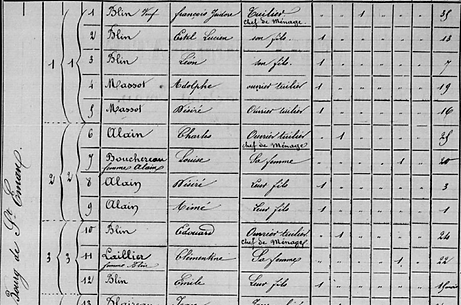 1 Blin Veuf françois Isidore Tuilier chef de Ménage " " 1 " " " 35
2 Blin Estel Lucien son fils 1 " " " " " 13
1 1 3 Blin Léon son fils 1 " " " " " 7
4 Massot Adolphe ouvrier tuilier 1 " " " " " 19
5 Massot Désiré Ouvrier tuilier 1 " " " " " 16
6 Alain Charles Ouvrier tuilier chef de Ménage " 1 " " " "
7 Bouchereau femme Alain Louise Sa femme " " " " 1 "
2 2 8 Alain Désiré Leur fils 1 " " " " " 3
9 Alain Aimé Leur fils 1 " " " " " 1
10 Blin Edouard Ouvrier tuilier chef de Ménage " 1 " " " " 24
3 3 11 Laillier femme Blin Clémentine Sa femme " " " " 1 " 22
12 Blin Emile Leur fils 1 " " " " "
13
Bourg de St